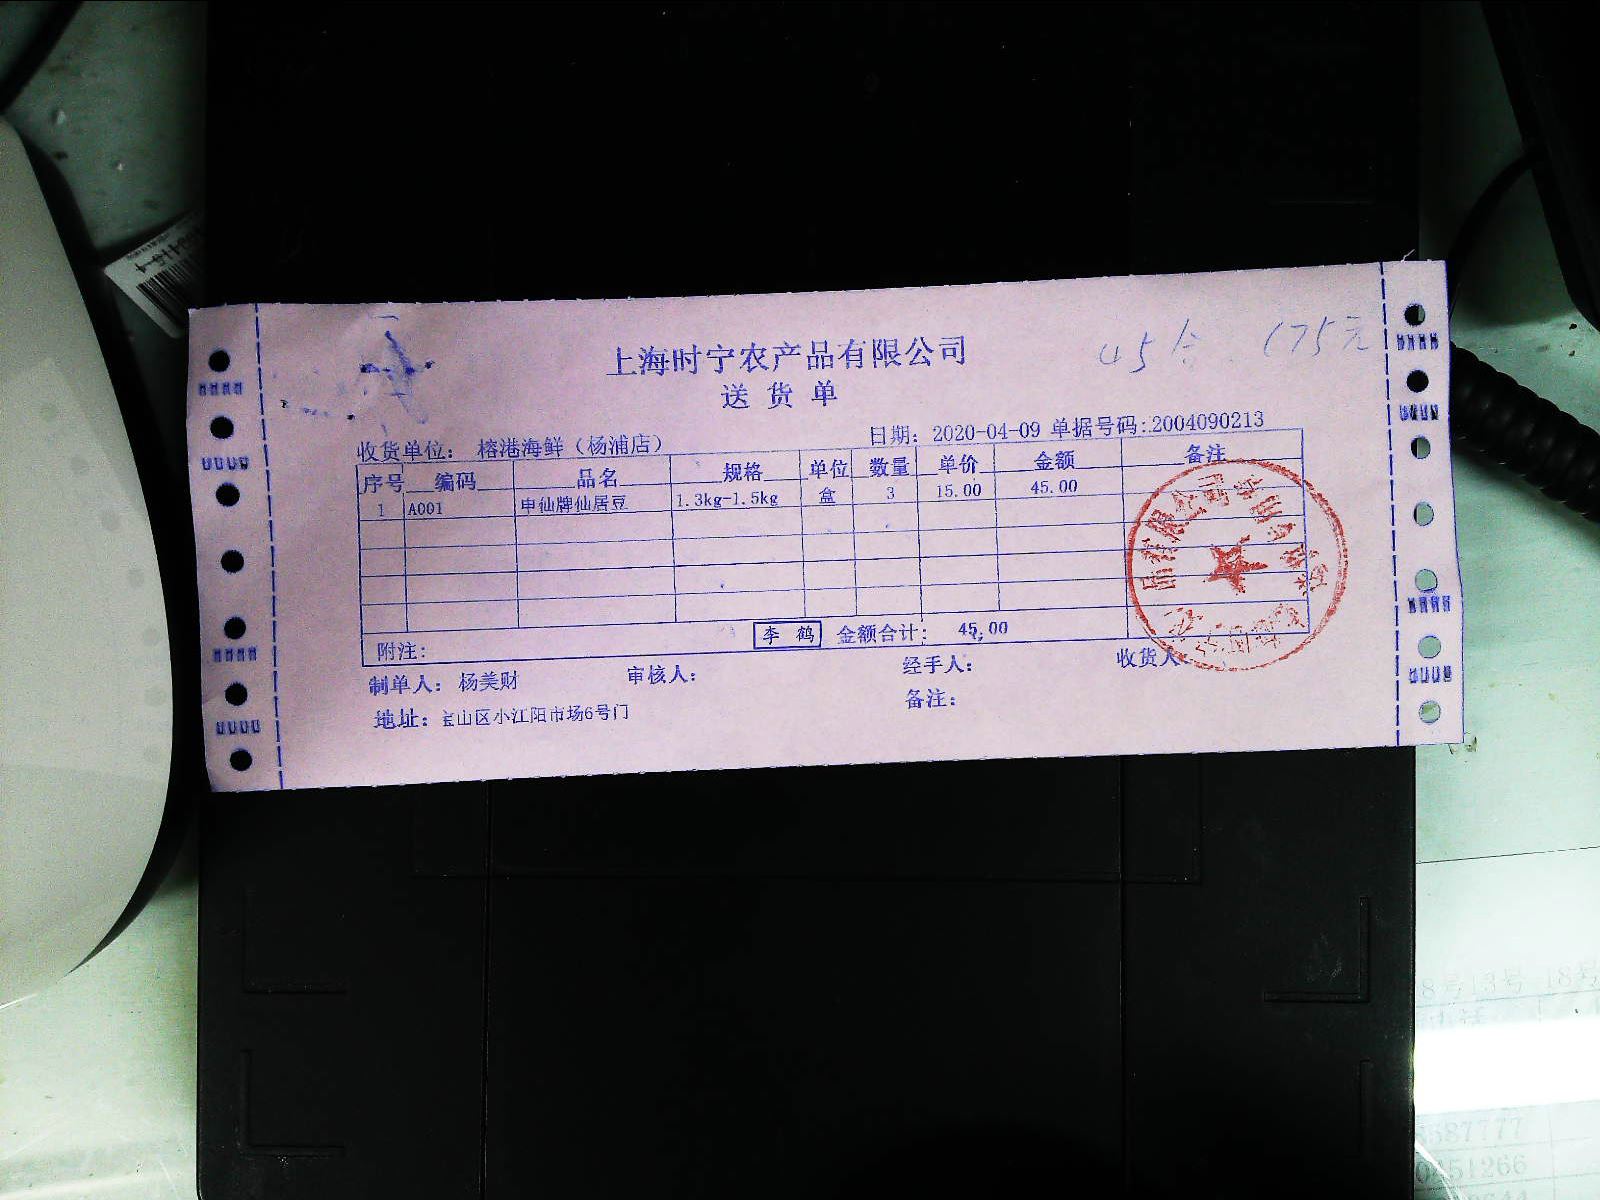 上海时宁农产品有限公司
送 货 单
收货单位： 榕港海鲜（杨浦店）
日期： 2020-04-09 单据号码:2004090213
序号 编码 品名 规格 单位 数量 单价 金额 备注
1 A001 申仙牌仙居豆 1.3kg-1.5kg 盒 3 15.00 45.00
附注: 李 鹤 金额合计: 45.00
制单人: 杨美财 审核人: 经手人: 收货人
地址: 宝山区小江阳市场6号门 备注:
8号13号 18号
8687777
0651266